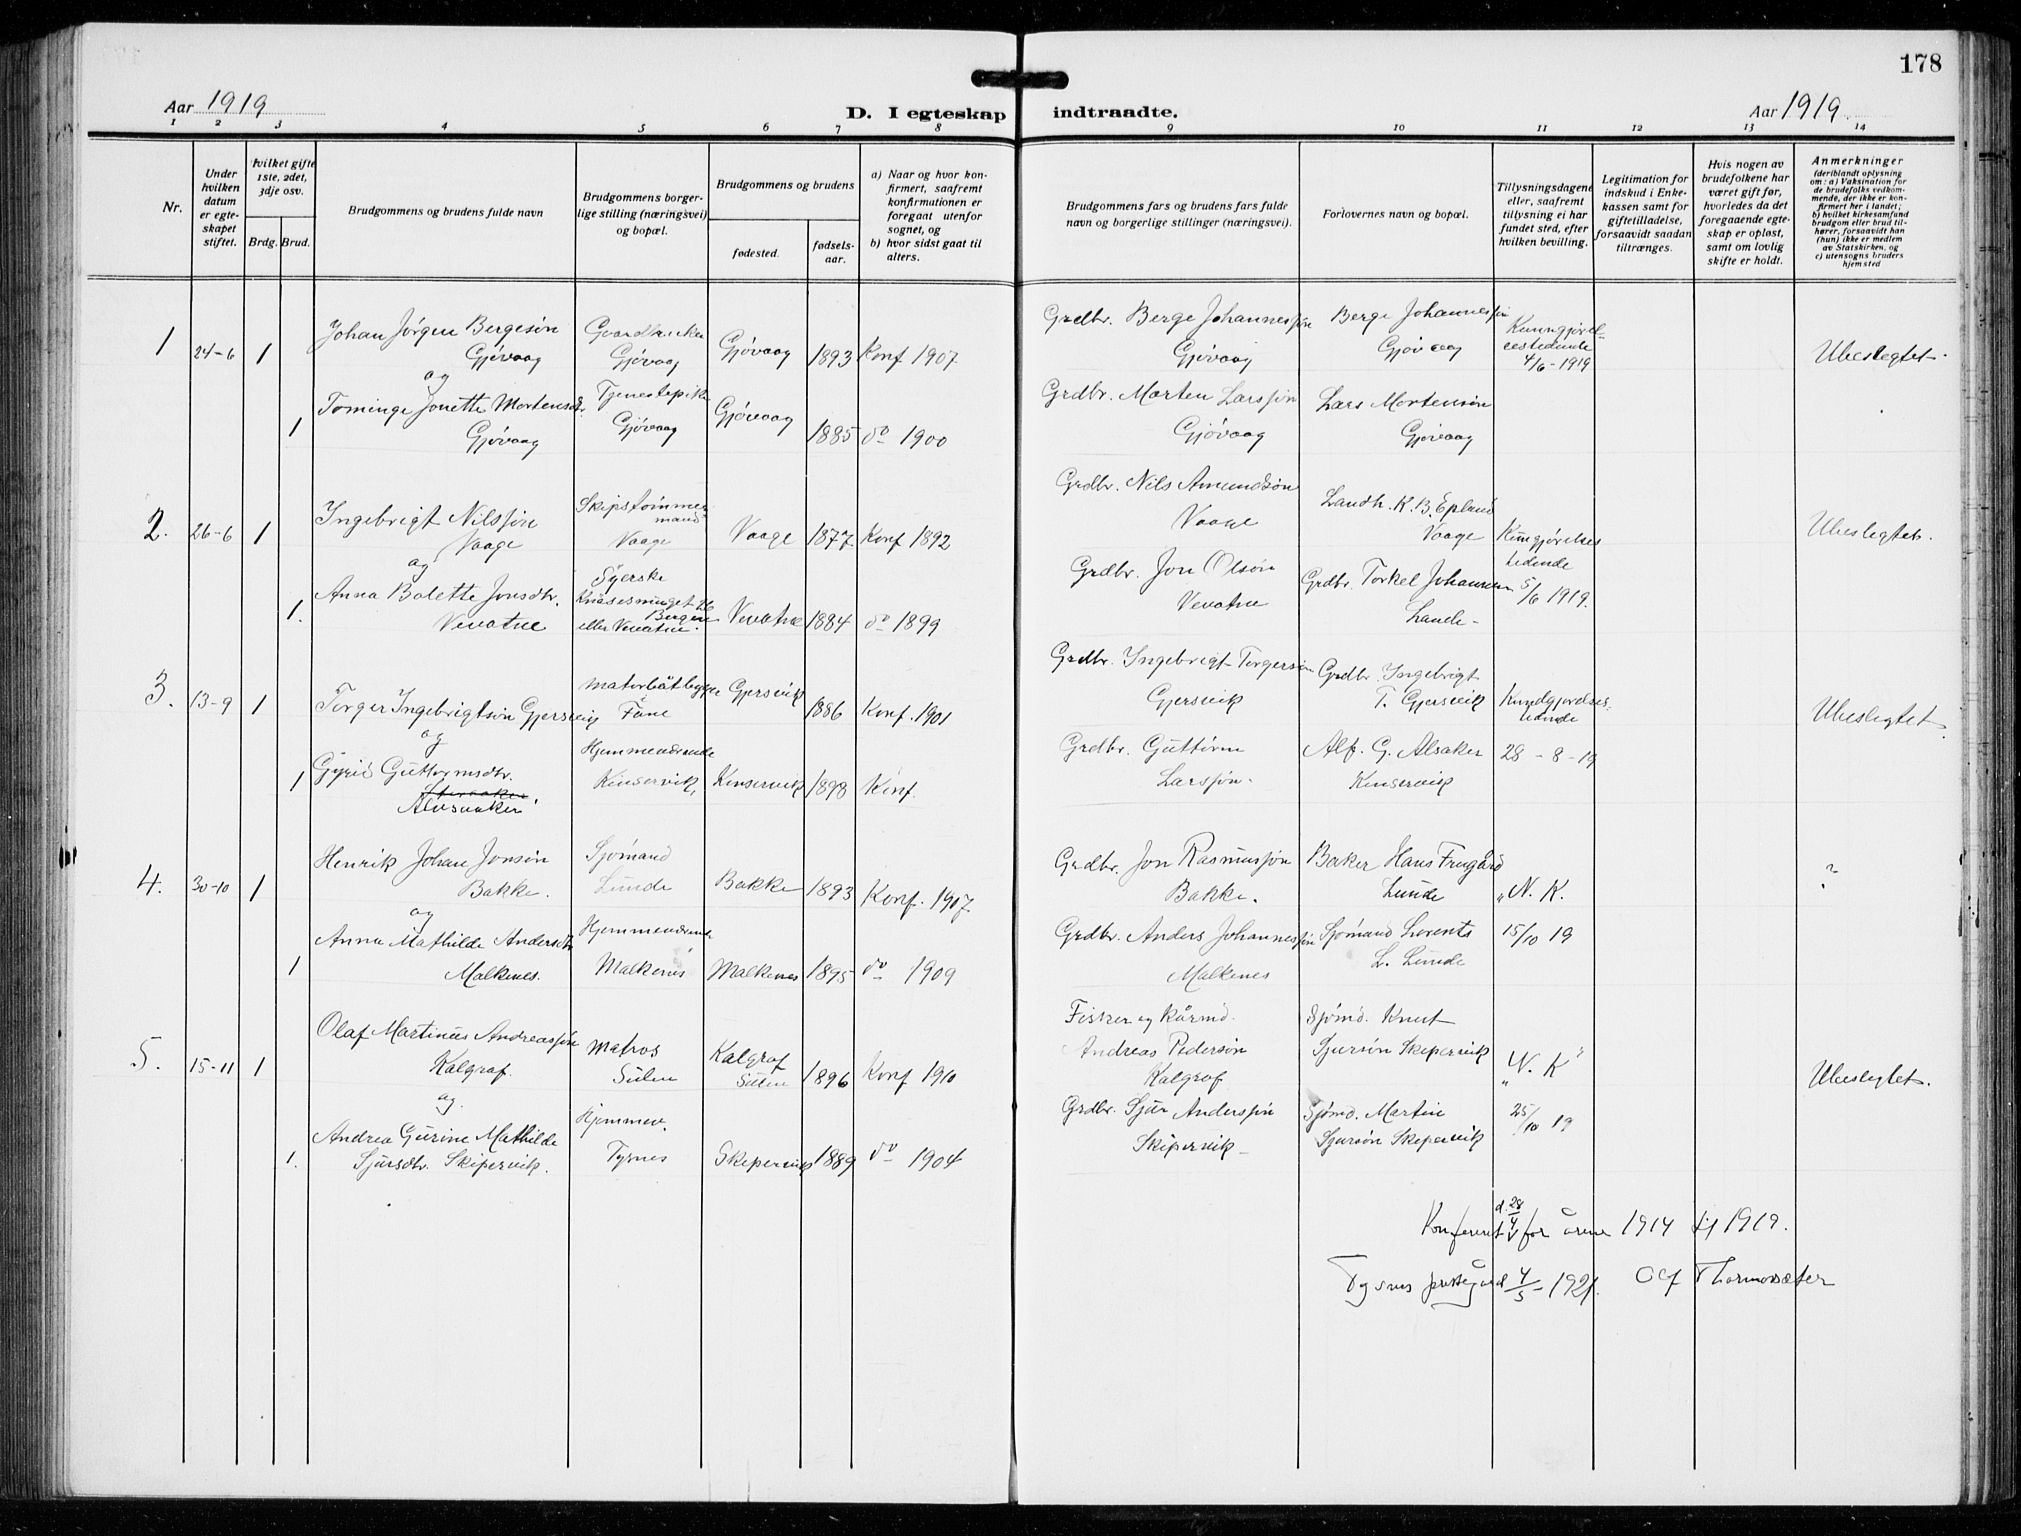 178
Aar 1919
D. I egteskap indtraadte.
Aar 1919.
1 2 3 4 5 6 7 8 9 10 11 12 13 14
Nr.
Under hvilken datum er egteskapet stiftet.
Hvilket gifte 1ste, 2det, 3dje osv.
Brdg. Brud.
Brudgommens og brudens fulde navn
Brudgommens borgerlige stilling (næringsvei) og bopæl.
Brudgommens og brudens
fødested.
fødselsaar.
a) Naar og hvor konfirmert, saafremt konfirmationen er foregaat utenfor sognet, og
b) hvor sidst gaat til alters.
Brudgommens fars og brudens fars fulde navn og borgerlige stillinger (næringsvei).
Forlovernes navn og bopæl.
Tillysningsdagene eller, saafremt tillysning ei har fundet sted, efter hvilken bevilling.
Legitimation for indskud i Enkekassen samt for giftetilladelse, forsaavidt saadan tiltrænges.
Hvis nogen av brudefolkene har været gift før, hvorledes da det foregaaende egteskap er opløst, samt om lovlig skifte er holdt.
Anmerkninger (deriblandt oplysning om: a) Vaksination for de brudefolks vedkommende, der ikke er konfirmert her i landet; b) hvilket kirkesamfund brudgom eller brud tilhører, forsaavidt han (hun) ikke er medlem av Statskirken, og c) utensogns bruders hjemsted
1 24-6 1 Johan Jörgen Bergesön Gjövaag Gaardbruker Gjövaag Gjövaag 1893 Konf 1907. Grdbr. Berge Johannessön Gjövaag Berge Johannessön Gjövaag Kunngjörelsestidende 4/6-1919 Ubeslegtet.
og
1 Tominge Jonette Mortensdtr. Gjövaag Tjenestepike Gjövaag Gjövaag 1885 do 1900 Grdbr. Morten Larssön Gjövaag Lars Mortensön Gjövaag
2. 26-6 1 Ingebrigt Nilssön Vaage Skipstömmermand Vaage Vaage 1877 Konf 1892 Grdbr. Nils Amundsön Vaage Landh. K. B. Epland Vaage Kungjörelses tidende 5/6 1919. Ubeslegtet.
og
1. Anna Bolette Jonsdtr. Vevatne Syerske Knösesmuget 26 Bergen eller Vevatne. Vevatne 1884 do 1899 Grdbr. Jon Olsön Vevatne Grdbr. Torkel Johannesen Lande
3. 13-9 1 Torger Ingebrigtsön Gjersvig motorbåtbygger Fane Gjersvik 1886 Konf. 1901 Grdbr. Ingebrigt Torgersön Gjersvik Grdbr. Ingebrigt T. Gjersvik Kundgjörelses-tidende 28-8-19 Ubeslegtet.
og
1 Gyrie Guttormsdtr. Alvsaaker Hjemmeværende Kinservik, Kinservik 1898 Konf. Grdbr. Guttorm Larssön. Alf. G. Alsaker Kinservik
4. 30-10 1 Henrik Johan Jonsön Bakke. Sjömand Lunde Bakke 1893 Konf. 1907. Grdbr. Jon Rasmussön Bakke. Baker Hans Frugård Lunde "N. K. 15/10 19 ?
og
1 Anna Mathilde Andersdtr. Malkenes. Hjemmeværende Malkenes Malkenes 1895 do 1909 Grdbr. Anders Johannessön Malkenes Sjömand Lorents L. Lunde
5. 15-11 1 Olaf Martinus Andreassön Kalgraf. Matros Sulen Kalgraf Sulen 1896 Konf 1910 Fisker og kårmd. Andreas Pedersön Kalgraf Sjömd. Knut Sjursön Skipervik "N. K" 25/10 19 Ubeslegtet.
og.
1. Andrea Gurine Mathilde Sjursdtr. Skipervik. Hjemmev. Tysnes Skipervik 1889 do 1904 Grdbr. Sjur Anderssön Skipervik Sjömd. Martin Sjursön Skipervik
Konferert d. 28/4 for årene 1914 til 1919.
Tysnes prestegård 4/5-1921. Olaf Thormodsæter